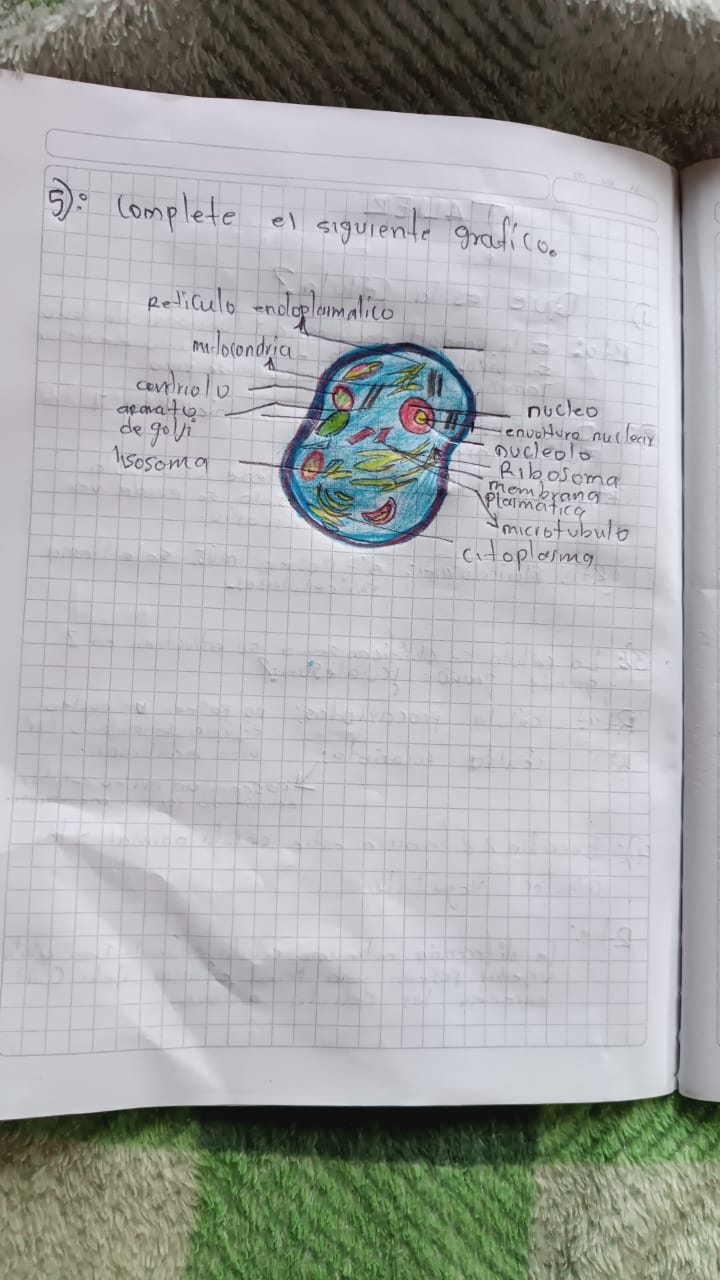 5): Complete el siguiente gráfico.
Retículo endoplasmatico
mitocondria
centriolo
aparato
de golfi
lisosoma
nucleo
envoltura nuclear
nucleolo
Ribosoma
membrana
plasmatica
microtubulo
citoplasma